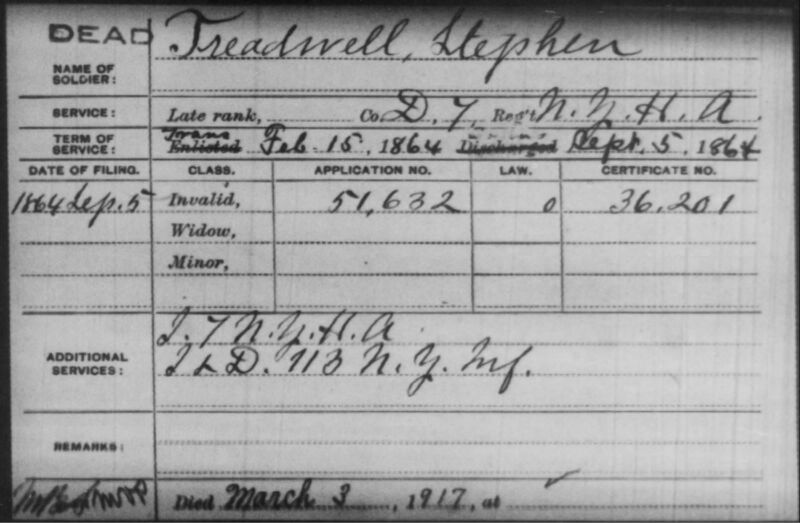 DEAD Treadwell, Stephen
NAME OF SOLDIER:
SERVICE: Late rank, Co. D. 7, Reg't N. Y. H. A.
TERM OF SERVICE: Trans Enlisted Feb 15, 1864 Discharged Sept. 5, 1864
DATE OF FILING. CLASS. APPLICATION NO. LAW. CERTIFICATE NO.
1864 Sep. 5 Invalid, 51,632 0 36.201
Widow,
Minor,
I. 7 N. Y. H. A.
ADDITIONAL SERVICES: I & D. 113 N. Y. Inf.
REMARKS:
Died March 3, 1917, at